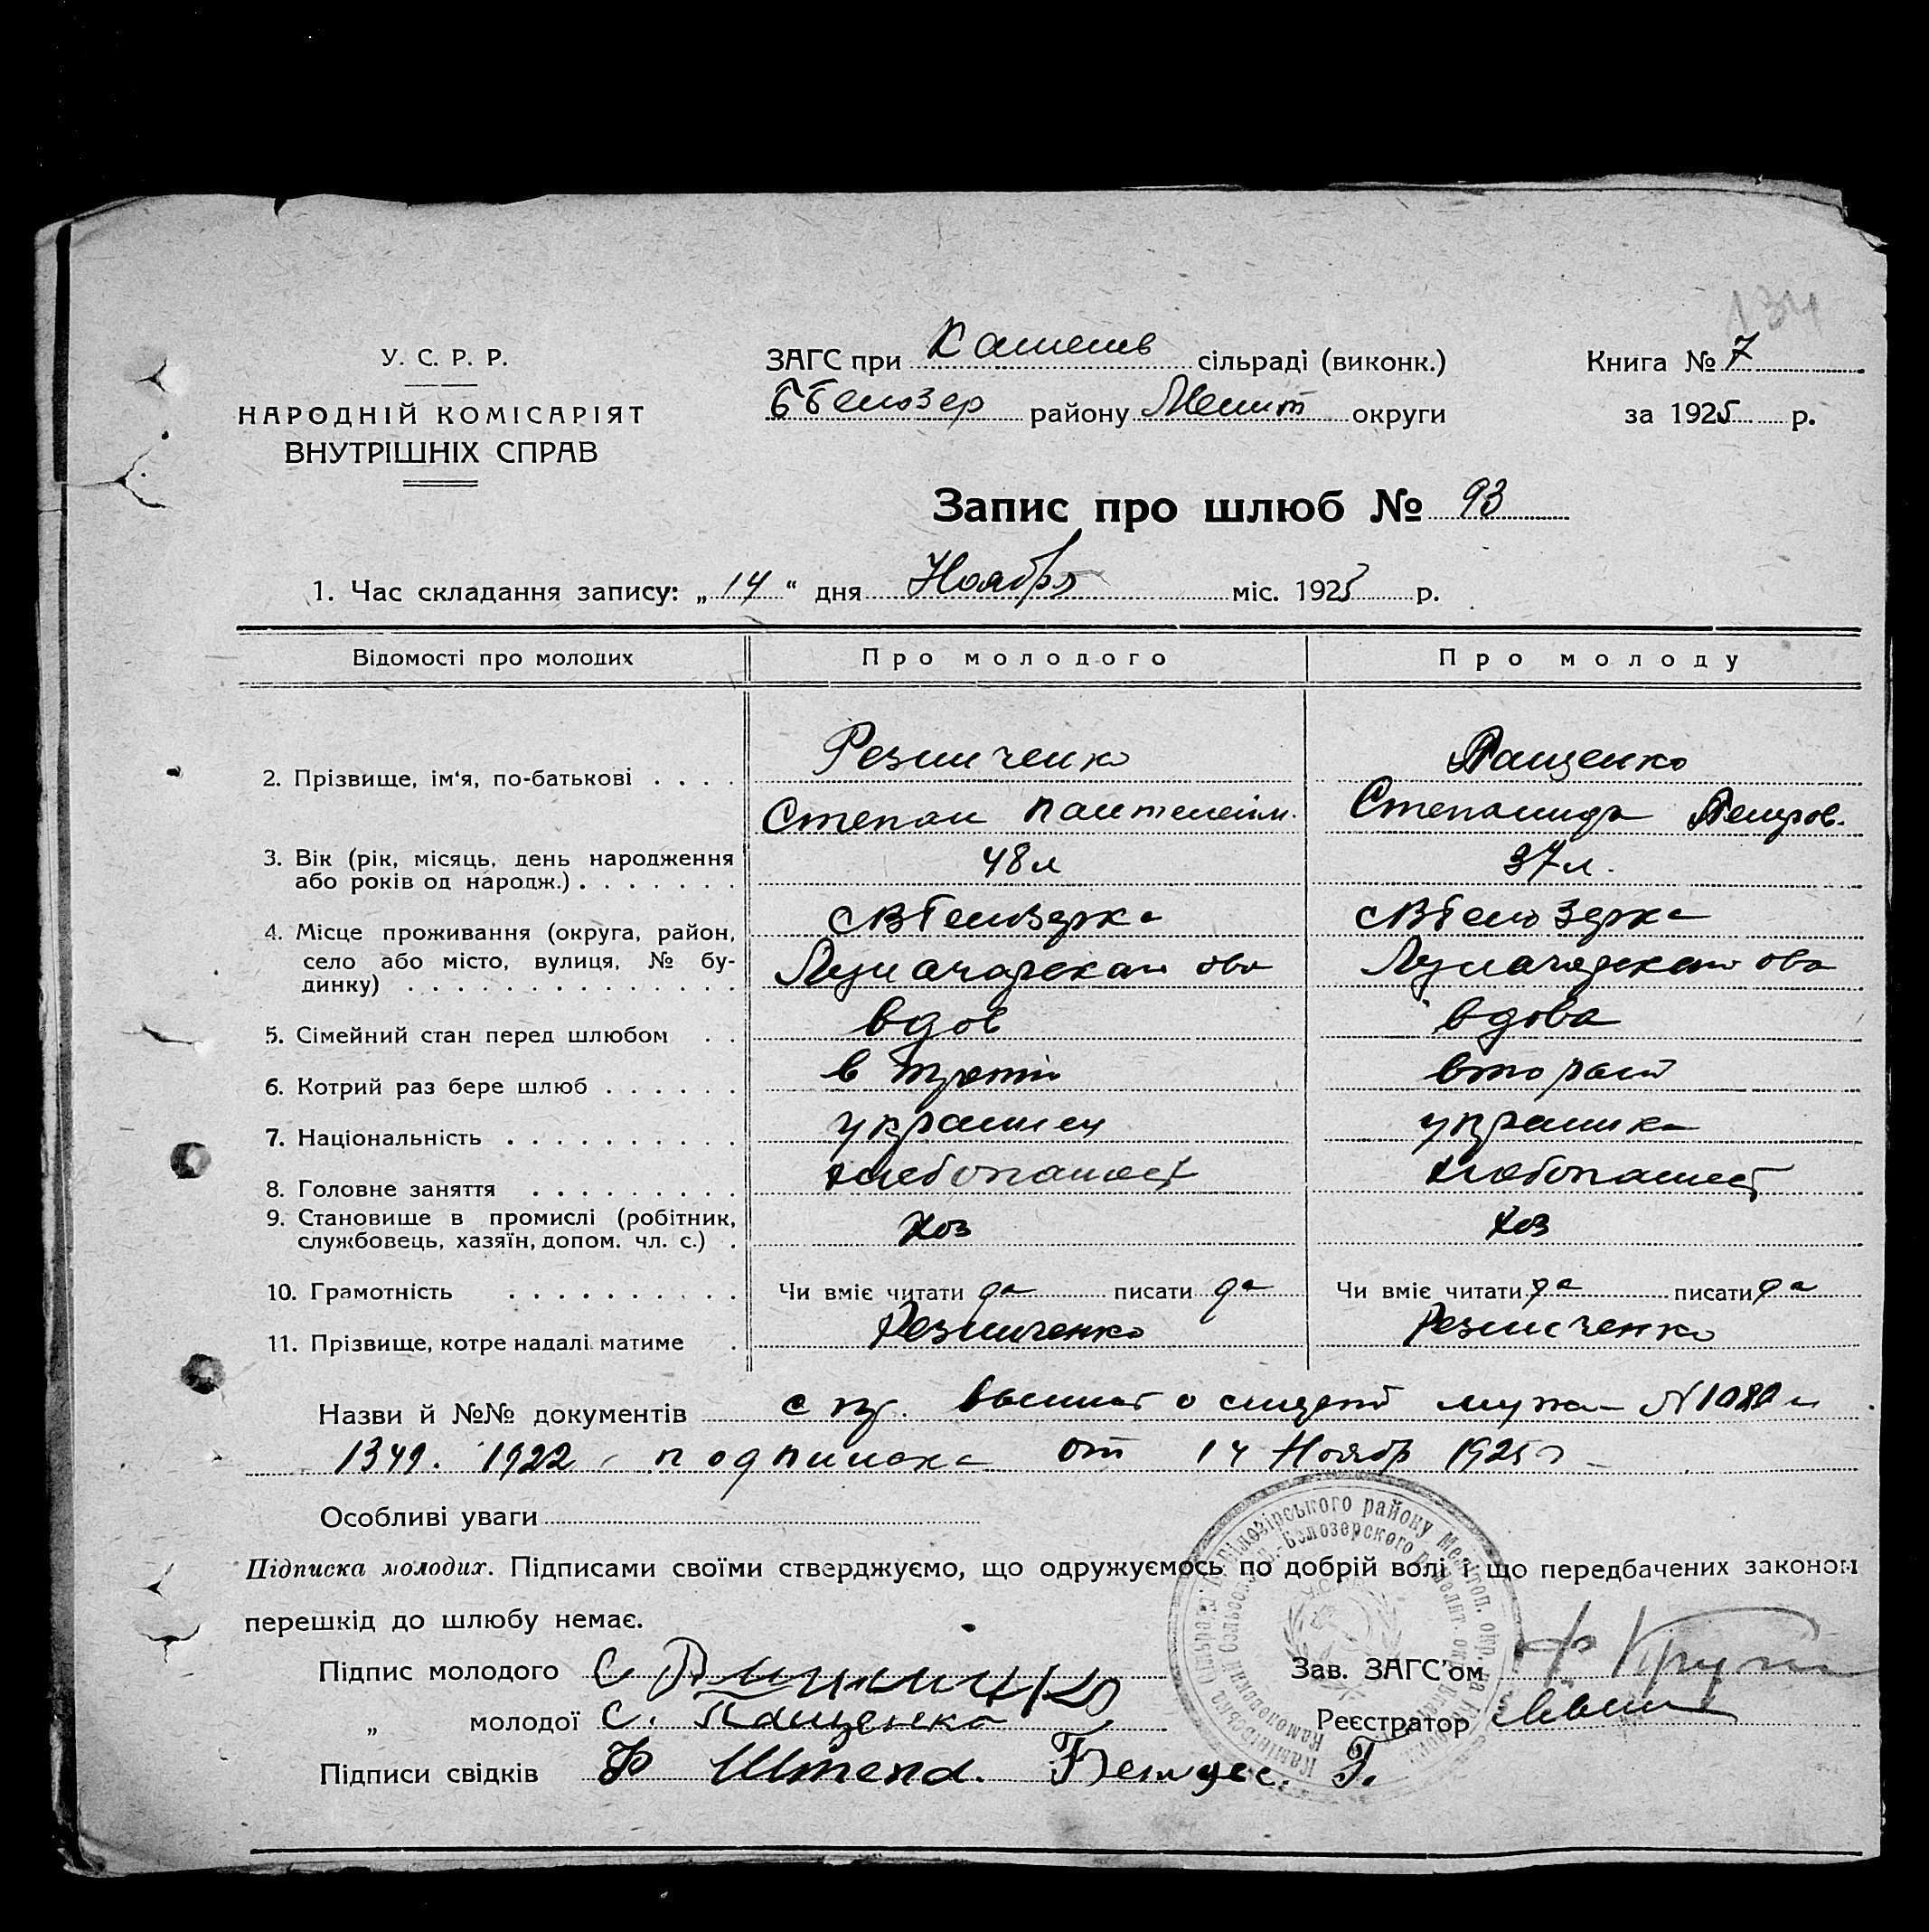 134
У. С. Р. Р.
НАРОДНІЙ КОМІСАРІЯТ
ВНУТРІШНІХ СПРАВ
ЗАГС при Каменев сільраді (виконк.)
Ббелозер району Мелит округи
Книга № 7
за 1925 р.
Запис про шлюб № 93
1. Час складання запису: „ 14 “ дня Ноября міс. 1925 р.
Відомості про молодих
Про молодого
Про молоду
2. Прізвище, ім‘я, по-батькові . . . .
Резниченко
Пащенко
Степан Пантелеим.
Степанида Петров.
3. Вік (рік, місяць, день народження
або років од народж.) . . . . . . .
48 л
37 л.
4. Місце проживання (округа, район,
село або місто, вулиця, № бу-
динку) . . . . . . . . . . . . . .
сВбелозерка
сВбелозерка
Луначарскаго ова
Луначарскаго ова
5. Сімейний стан перед шлюбом . .
вдов
вдова
6. Котрий раз бере шлюб . . . . . .
в трети
второй
7. Національність . . . . . . . . . .
украинец
украинка
8. Головне заняття . . . . . . . . .
хлебопашест
хлебопашест
9. Становище в промислі (робітник,
службовець, хазяїн, допом. чл. с.) .
хоз
хоз
10. Грамотність . . . . . . . . . .
Чи вміє читати да писати да
Чи вміє читати да писати да
11. Прізвище, котре надалі матиме .
Резниченко
Резниченко
Назви й №№ документів с пр. о смерти мужа N 1080 и
1349. 1922 подписка от 14 Ноябр 1925 г
Особливі уваги
Підписка молодих. Підписами своїми стверджуємо, що одружуємось по добрій волі і що передбачених законом
перешкід до шлюбу немає.
Підпис молодого С
Зав. ЗАГС’ом
„ молодої С. Пащенко
Реєстратор
Підписи свідків Ф Штепа. Г.